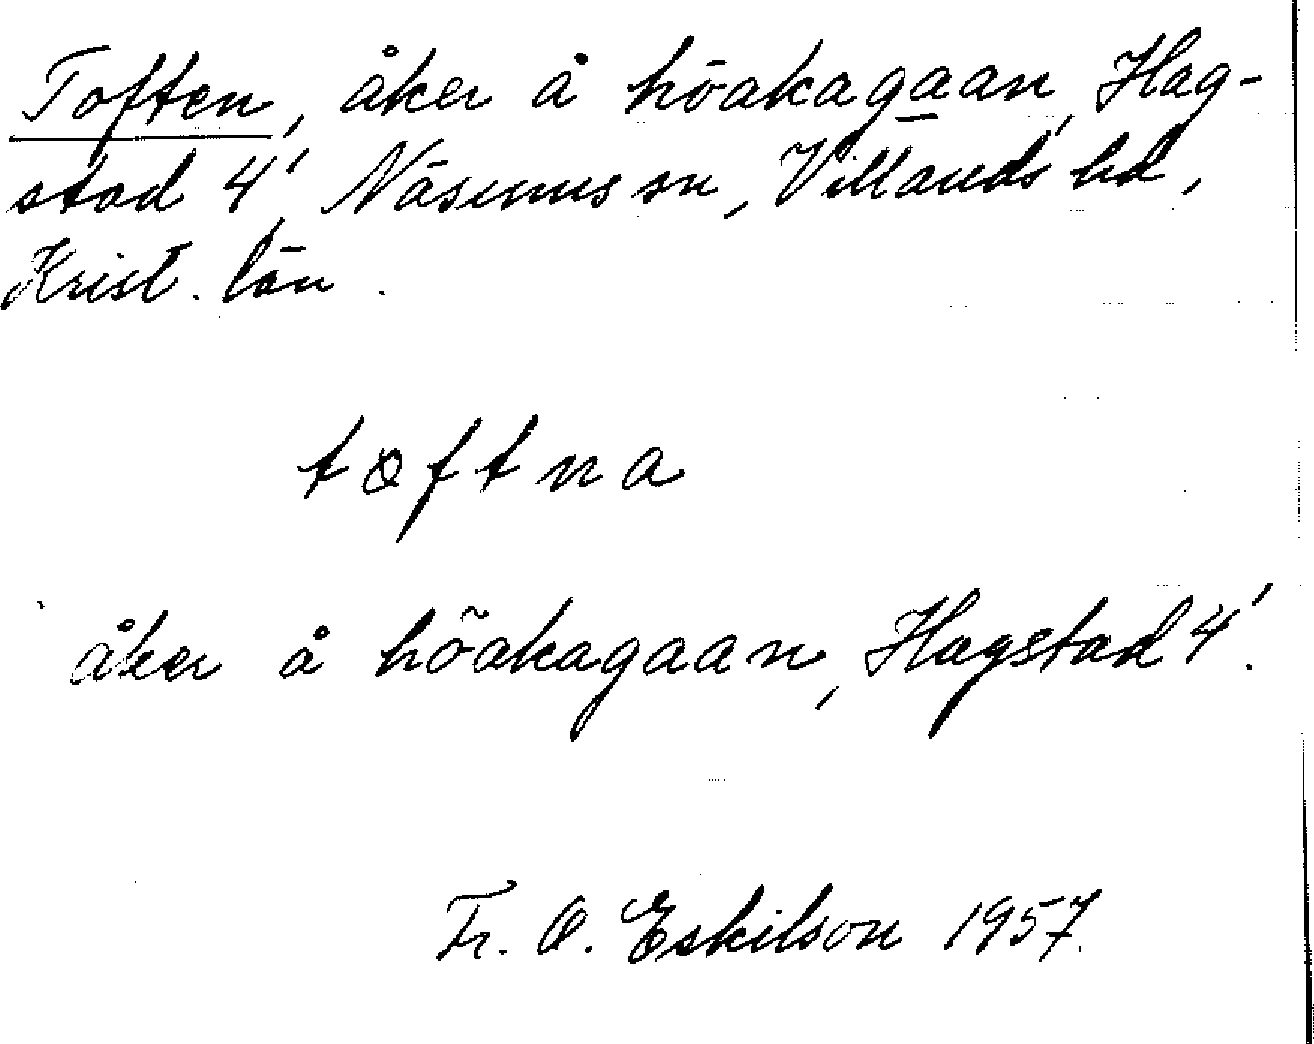 Toften, åker å höakagaan, Hag-
stad 4', Näsums sn, Villands hd,
Krist. län.
toftna
åker å höakagaan, Hagstad 4'.
Fr. O. Eskilson 1957.